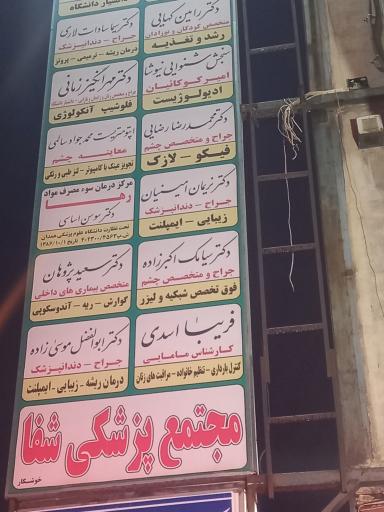 دانشیار دانشگاه
دکتر رامین کیهانی
متخصص کودکان و نوزادان
رشد و تغذیه
دکتر سیما سادات لاری
جراح - دندانپزشک
درمان ریشه - ترمیمی - پروتز
سنجش شنوایی نیوشا
امیر کوکائیان
ادیولوژیست
دکتر مهرانگیز زمانی
فلوشیپ آنکولوژی
دکتر محمدرضا رضایی
جراح و متخصص چشم
فیکو - لازک
اپتومتریست محمدجواد سالمی
معاینه چشم
تجویز عینک با کامپیوتر - لنز طبی و رنگی
دکتر نریمان امینیان
جراح - دندانپزشک
زیبایی - ایمپلنت
مرکز درمان سوء مصرف مواد
رها
دکتر سوسن اساسی
تحت نظارت دانشگاه علوم پزشکی همدان
دکتر سیامک اکبرزاده
جراح و متخصص چشم
فوق تخصص شبکیه و لیزر
دکتر سعید پژوهان
متخصص بیماری های داخلی
گوارش - ریه - آندوسکوپی
فریبا اسدی
کارشناس مامایی
کنترل بارداری - تنظیم خانواده - مراقبت های زنان
دکتر ابوالفضل موسی زاده
جراح - دندانپزشک
درمان ریشه - زیبایی - ایمپلنت
مجتمع پزشکی شفا
خوشنگار